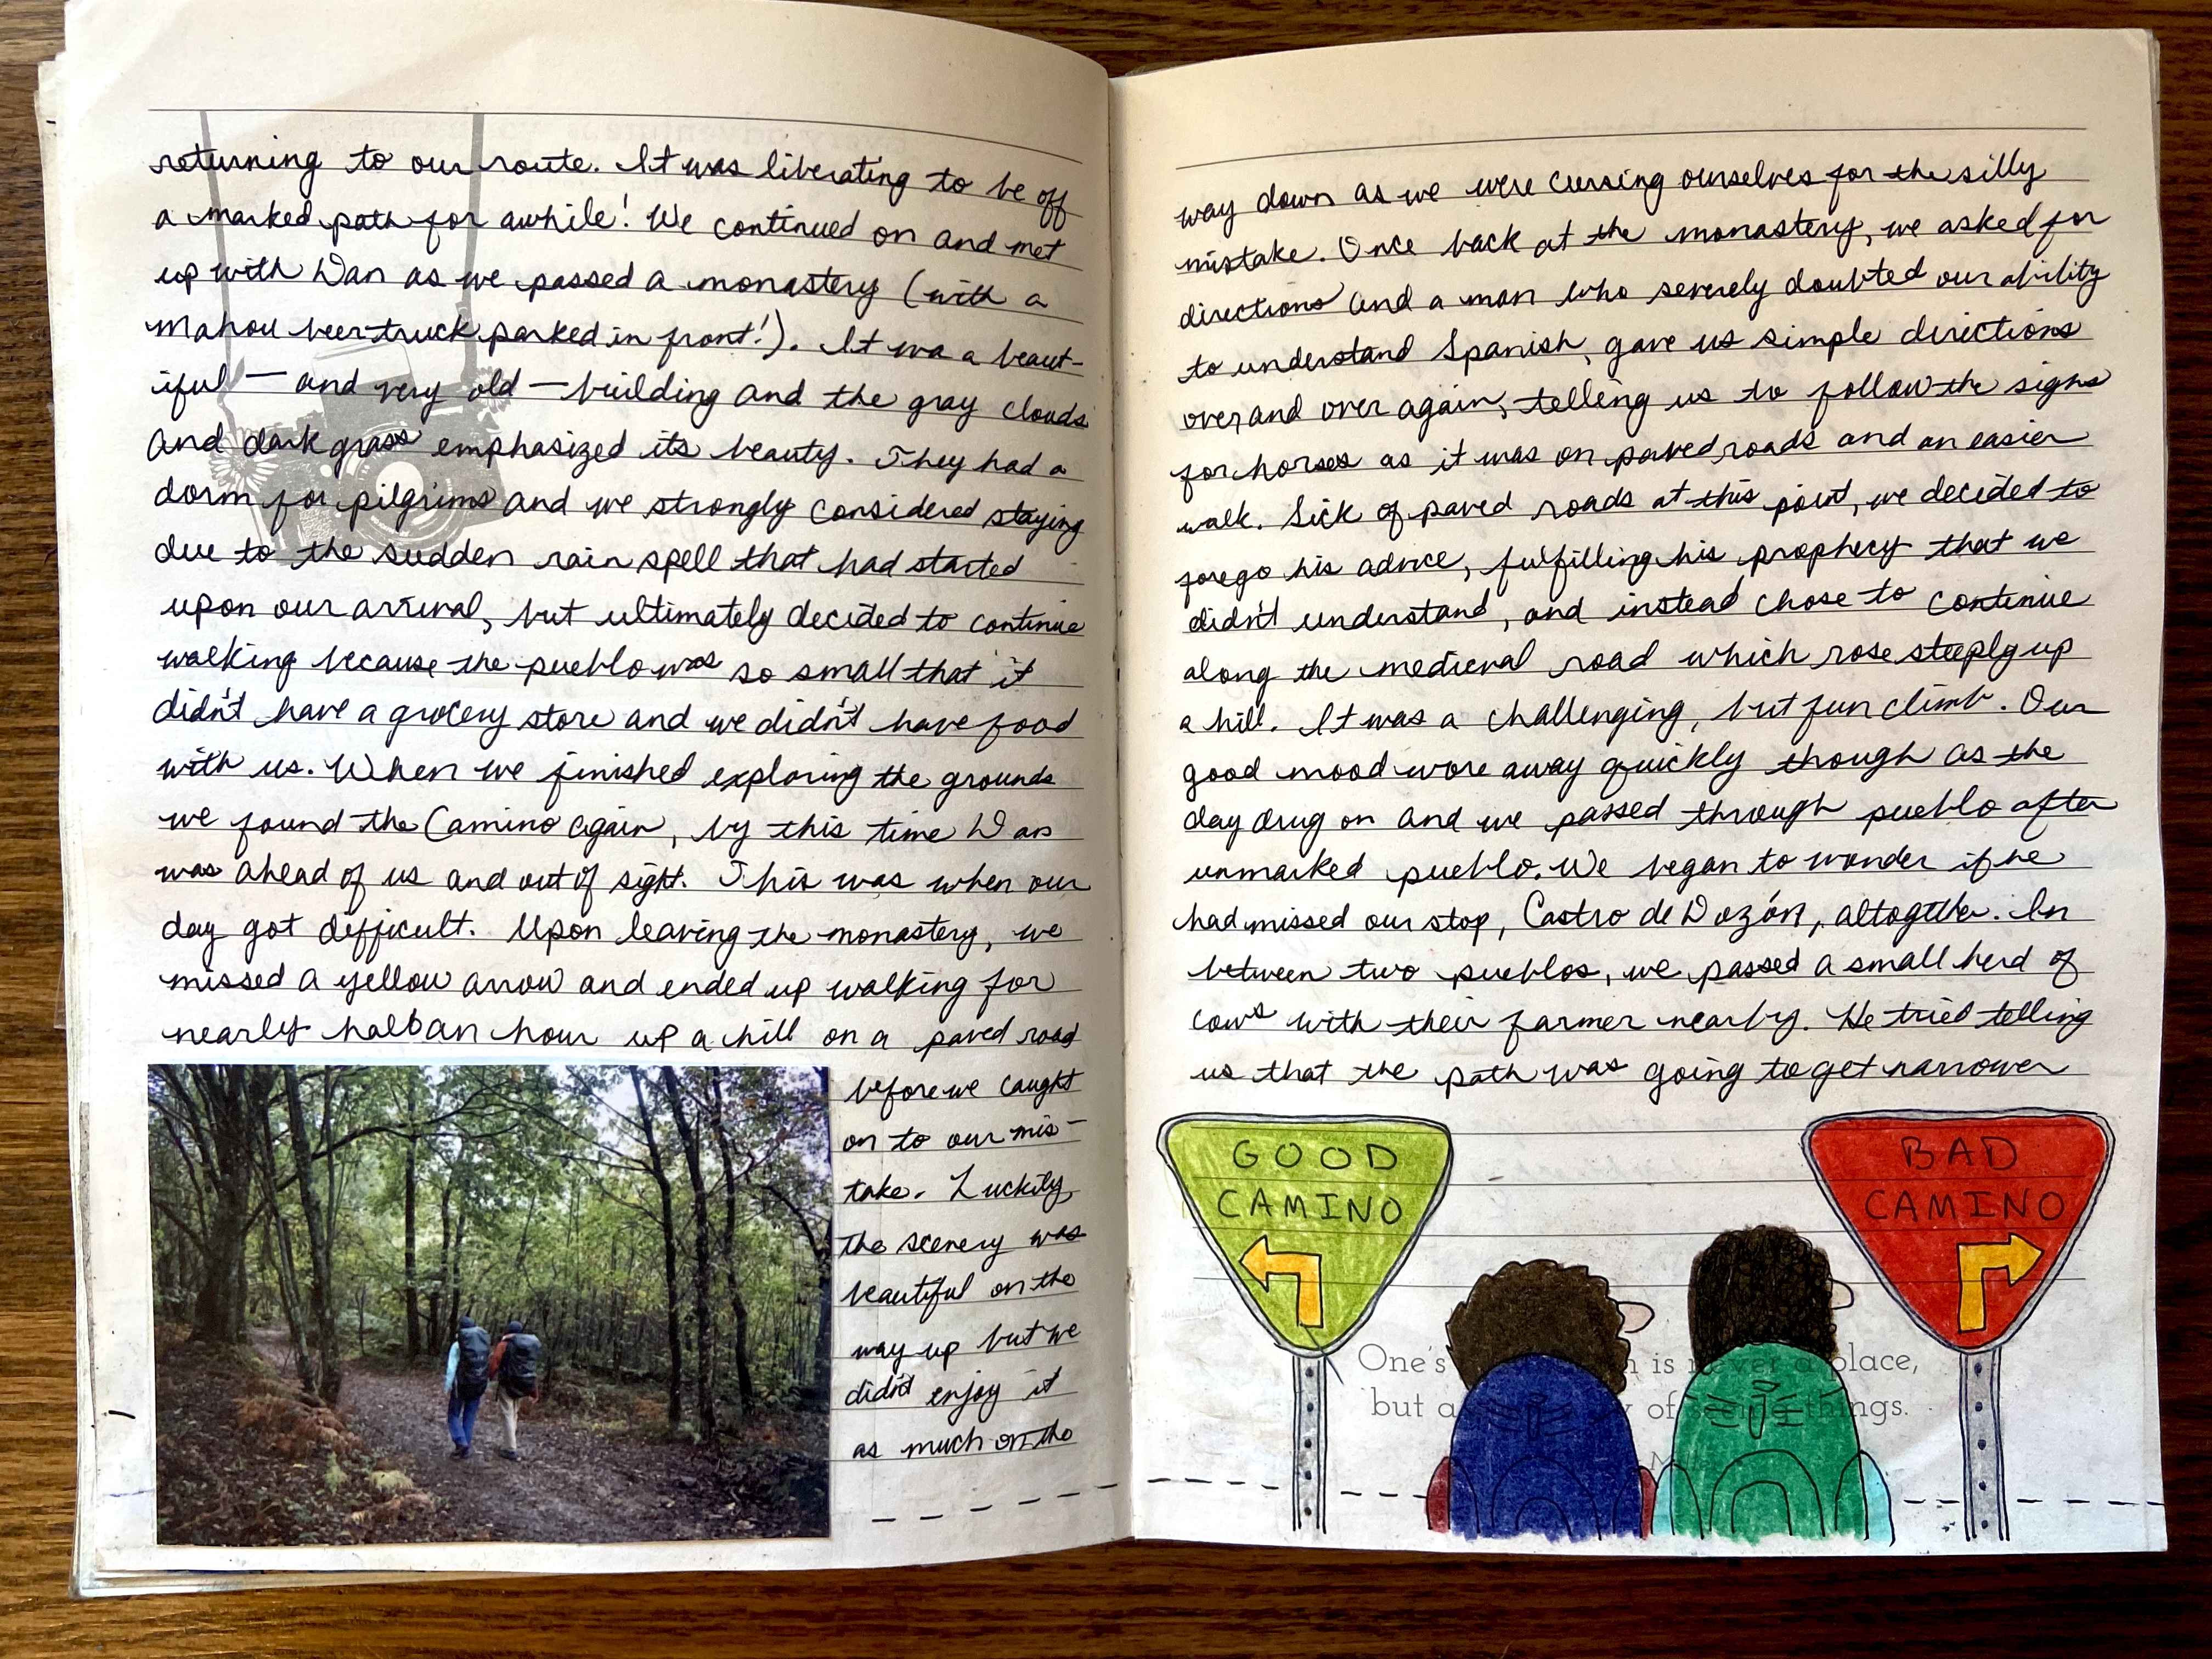 returning to our route. It was liberating to be off
a marked path for awhile! We continued on and met
up with Dan as we passed a monastery (with a
Mahou beer truck parked in front!). It wa a beaut-
iful — and very old — building and the gray clouds
and dark grass emphasized its beauty. They had a
dorm for pilgrims and we strongly considered staying
due to the sudden rain spell that had started
upon our arrival, but ultimately decided to continue
walking because the pueblo was so small that it
didn't have a grocery store and we didn't have food
with us. When we finished exploring the grounds
we found the Camino again, by this time Dan
was ahead of us and out of sight. This was when our
day got difficult. Upon leaving the monastery, we
missed a yellow arrow and ended up walking for
nearly half an hour up a hill on a paved road
before we caught
on to our mis-
take. Luckily
the scenery was
beautiful on the
way up but we
didn't enjoy it
as much on the
way down as we were cursing ourselves for the silly
mistake. Once back at the monastery, we asked for
directions and a man who severely doubted our ability
to understand Spanish, gave us simple directions
over and over again, telling us to follow the signs
for horses as it was on paved roads and an easier
walk. Sick of paved roads at this point, we decided to
forego his advice, fulfilling his prophecy that we
didn't understand, and instead chose to continue
along the medieval road which rose steeply up
a hill. It was a challenging, but fun climb. Our
good mood wore away quickly though as the
day drug on and we passed through pueblo after
unmarked pueblo. We began to wonder if we
had missed our stop, Castro de Dozón, altogther. In
between two pueblos, we passed a small herd of
cows with their farmer nearby. He tried telling
us that the path was going to get narrower
GOOD
CAMINO
BAD
CAMINO
One's is never a place,
but a of things.